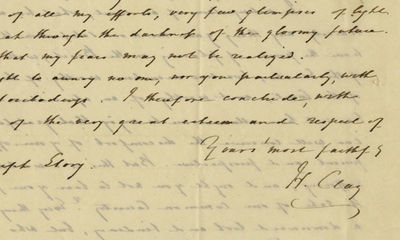 of all my efforts, very few glimpses of light
at through the darkness of the gloomy future.
that my fears may not be realized.
ght to annoy no one, nor you particularly, with
forebodings. I therefore conclude, with
of the very great esteem and respect of
Yours most faithfy
eph Story.
H. Clay